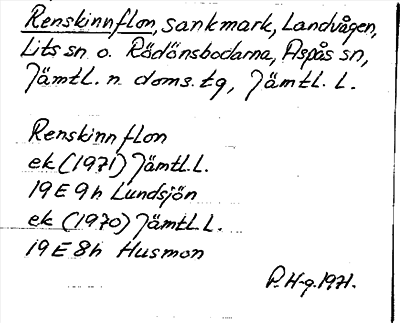 Renskinnflon, sankmark, Landvågen,
Lits sn o. Rödönsbodarna, Aspås sn,
Jämtl. n. doms. tg, Jämtl. L.
Renskinnflon
ek (1971) Jämtl. L.
19 E 9h Lundsjön
ek (1970) Jämtl. L.
19 E 8h Husmon
P. H-g. 1971.